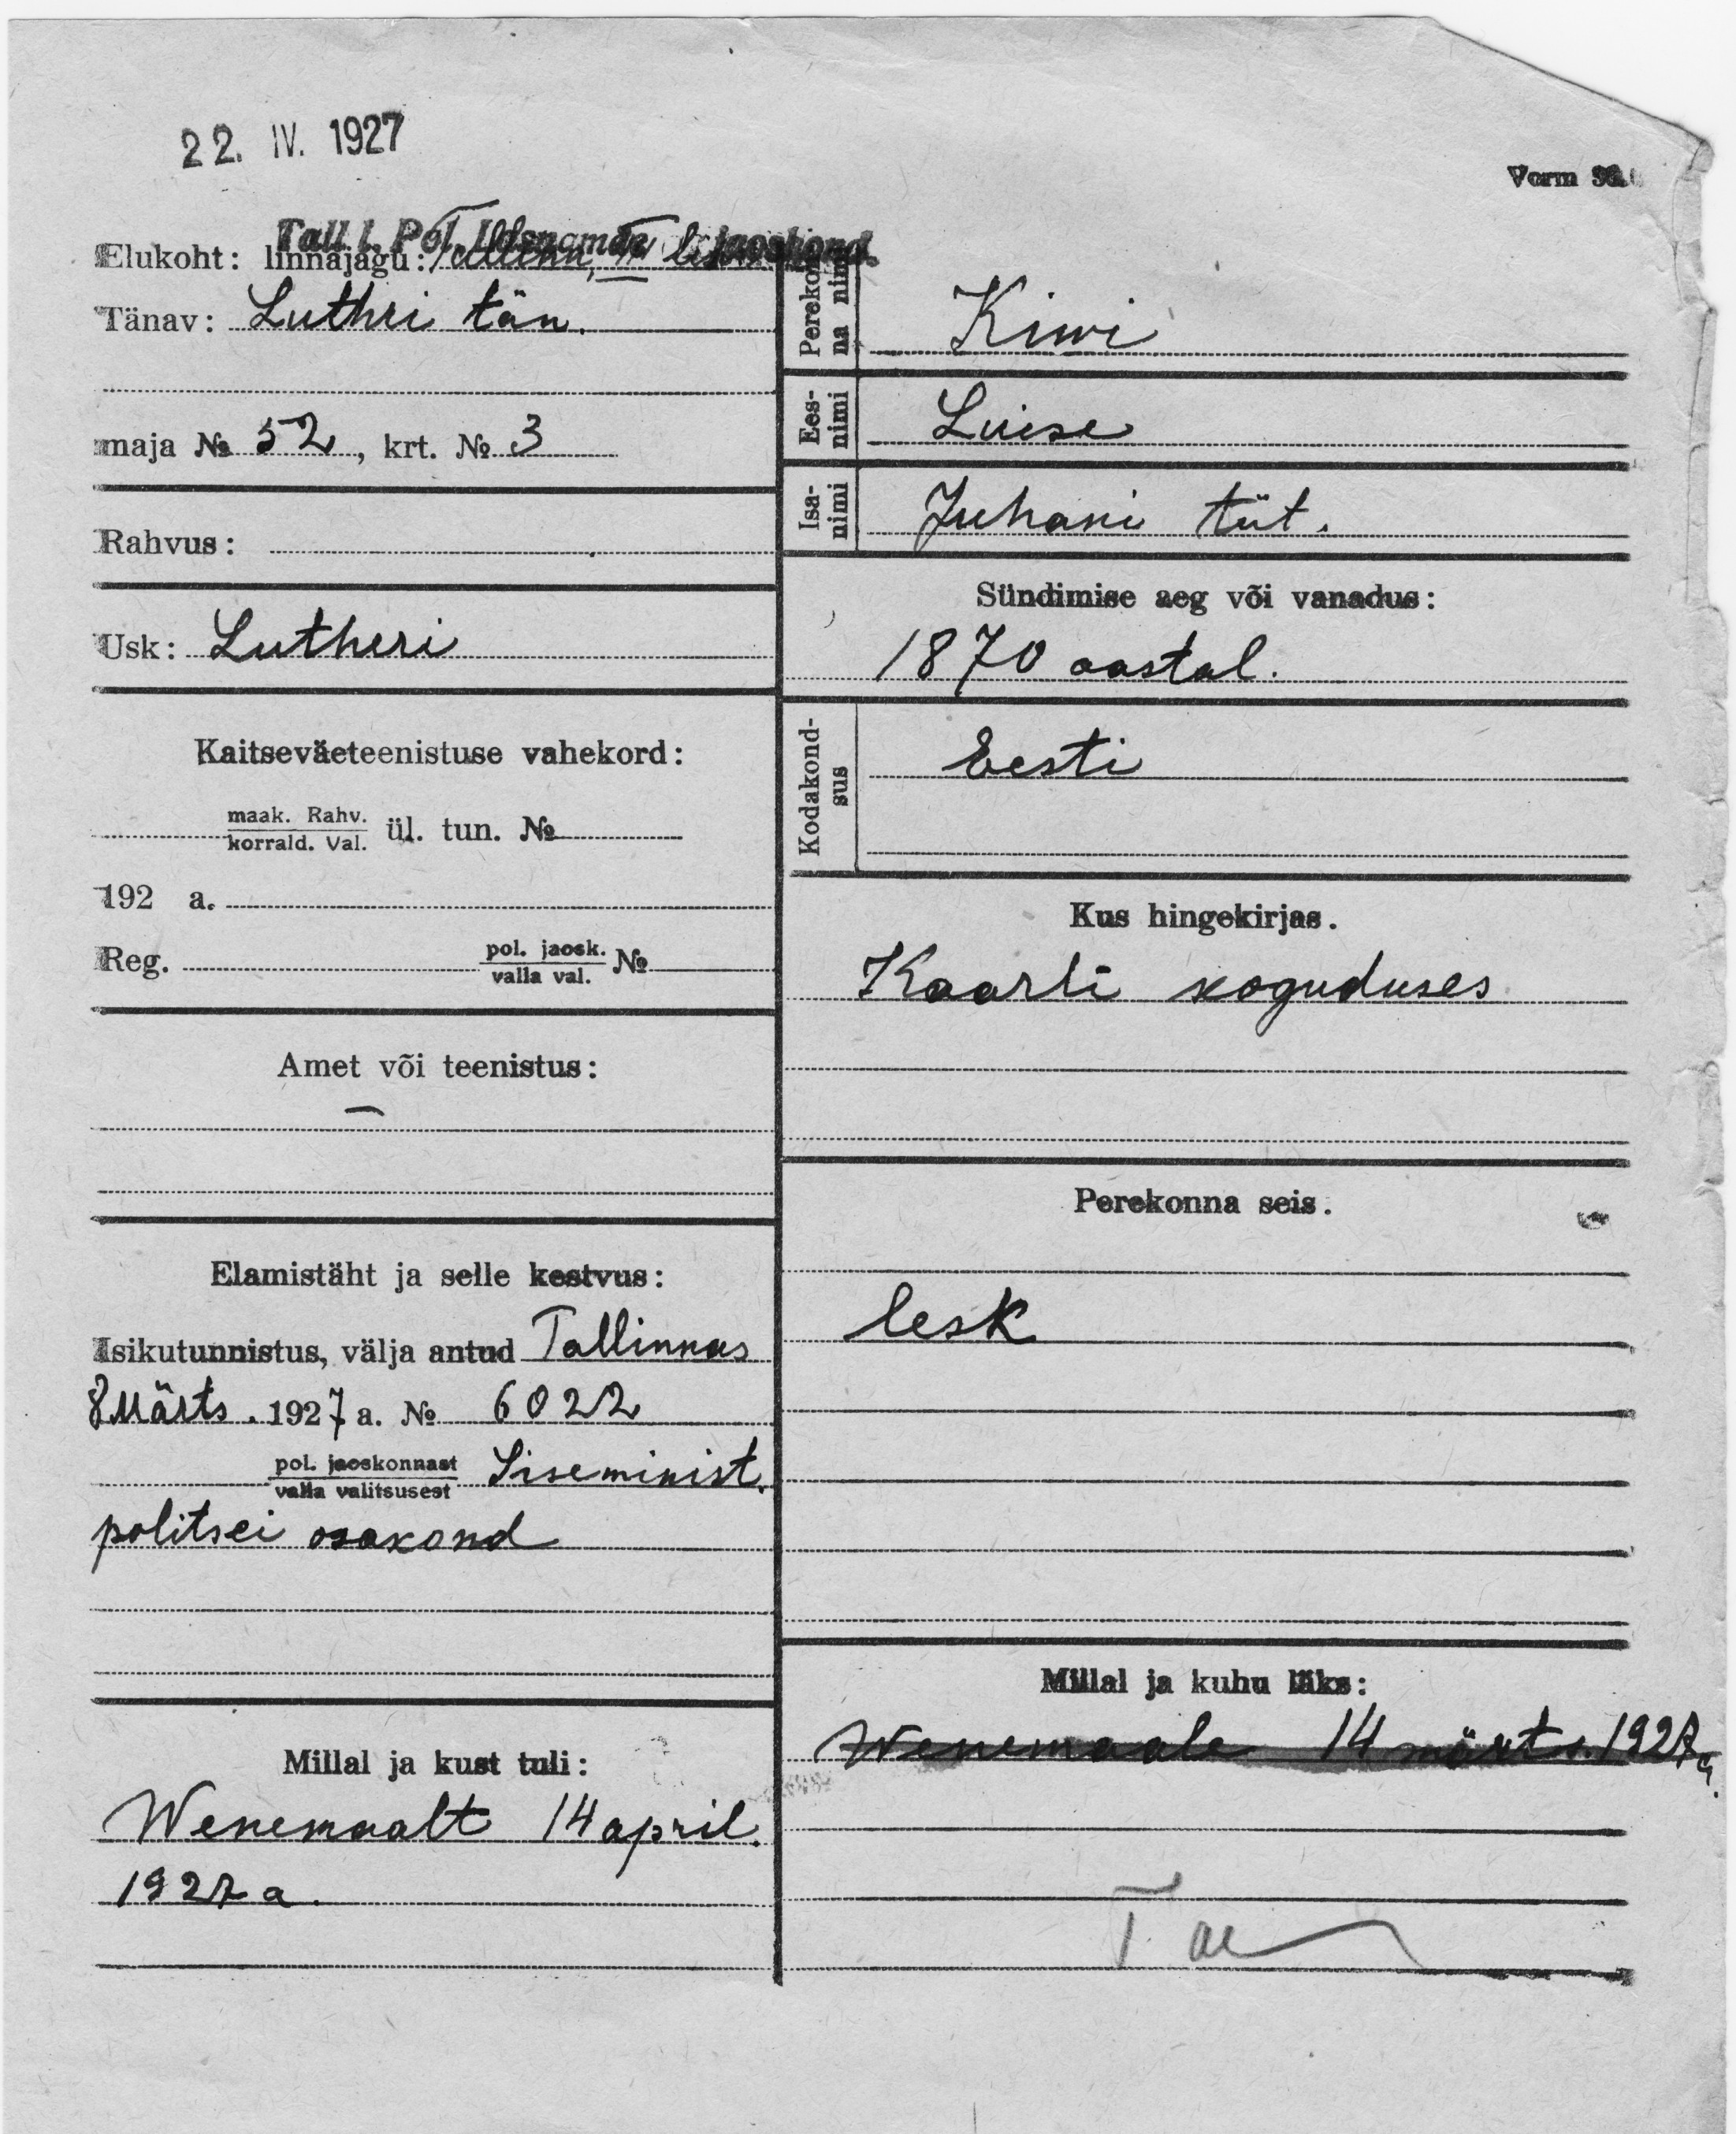 22. IV. 1927
Vorm
Tall. l. Pol. jaoskond.
Elukoht: linnajagu: Tallinn,
Tänav: Luthri tän.
maja № 52, krt. № 3
Rahvus:
Usk: Lutheri
Kaitseväeteenistuse vahekord:
maak. Rahv.
korrald. Val. ül. tun. №
192 a.
Reg. pol. jaosk. №
valla val.
Amet või teenistus:
—
Elamistäht ja selle kestvus:
Isikutunnistus, välja antud Tallinnas
8 Märts. 1927 a. № 6022
pol. jaoskonnast
valla valitsusest Siseminist.
politsei osakond
Millal ja kust tuli:
Wenemaalt 14 april.
1927 a.
Perekonna nimi
Kiwi
Ees-
nimi
Luise
Isa-
nimi
Juhani tüt.
Sündimise aeg või vanadus:
1870 aastal.
Kodakond-
sus
Eesti
Kus hingekirjas.
Kaarli koguduses
Perekonna seis.
lesk
Millal ja kuhu läks:
Wenemaale 14 märts. 1927 a.